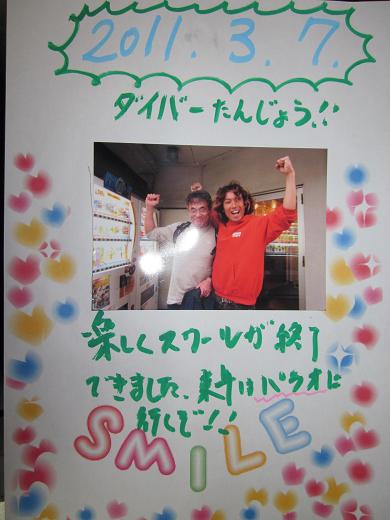 2011.3.7.
ダイバーたんじょう!!
楽しくスクールが終了
できました、来年はパラオに
行くぞ!!
SMILE